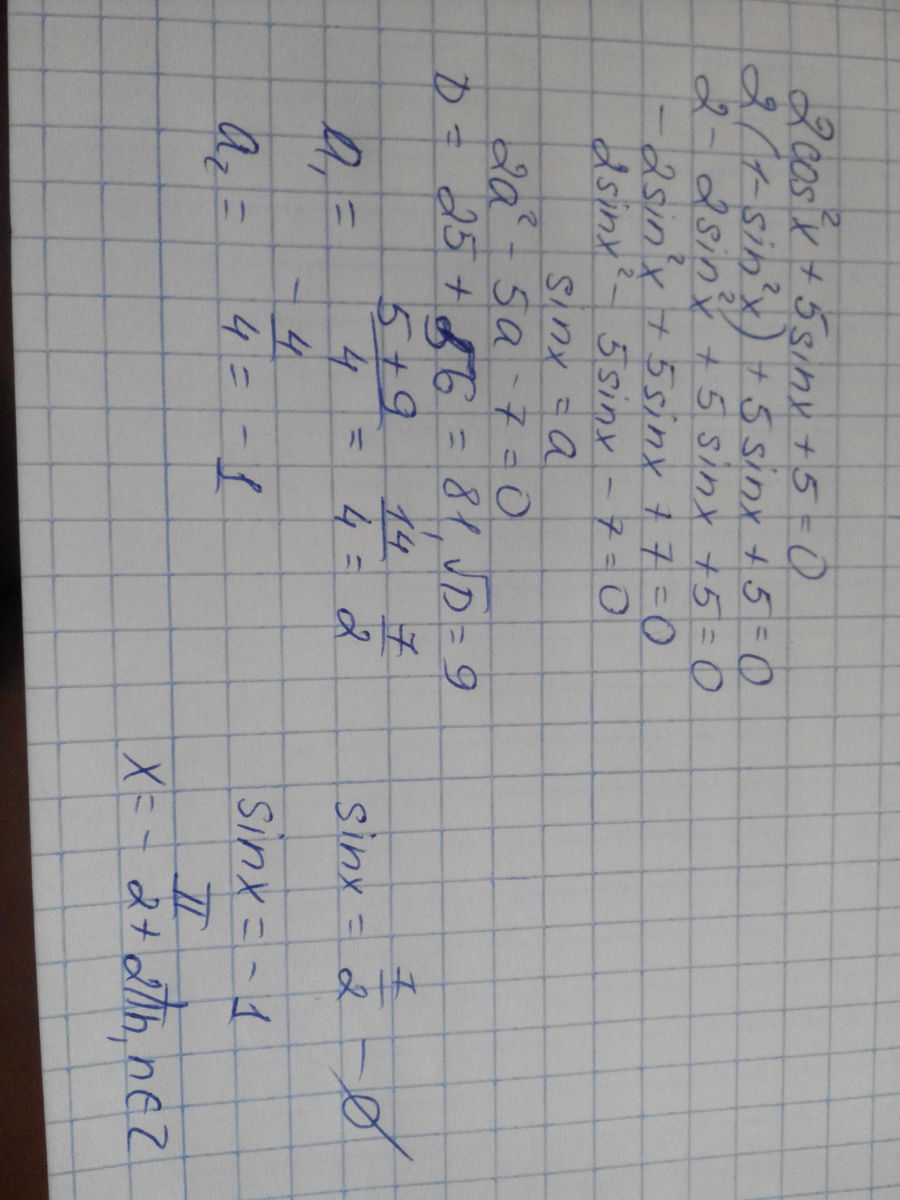 2cos²x + 5sinx + 5 = 0
2(1-sin²x) + 5sinx + 5 = 0
2 - 2sin²x + 5sinx + 5 = 0
- 2sin²x + 5sinx + 7 = 0
2sinx² - 5sinx - 7 = 0
sinx = a
2a² - 5a - 7 = 0
D = 25 + 56 = 81, √D = 9
a₁ = (5+9)/4 = 14/4 = 7/2
a₂ = -4/4 = -1
sinx = 7/2 - ∅
sinx = -1
x = - π/2 + 2πn, n∈Z